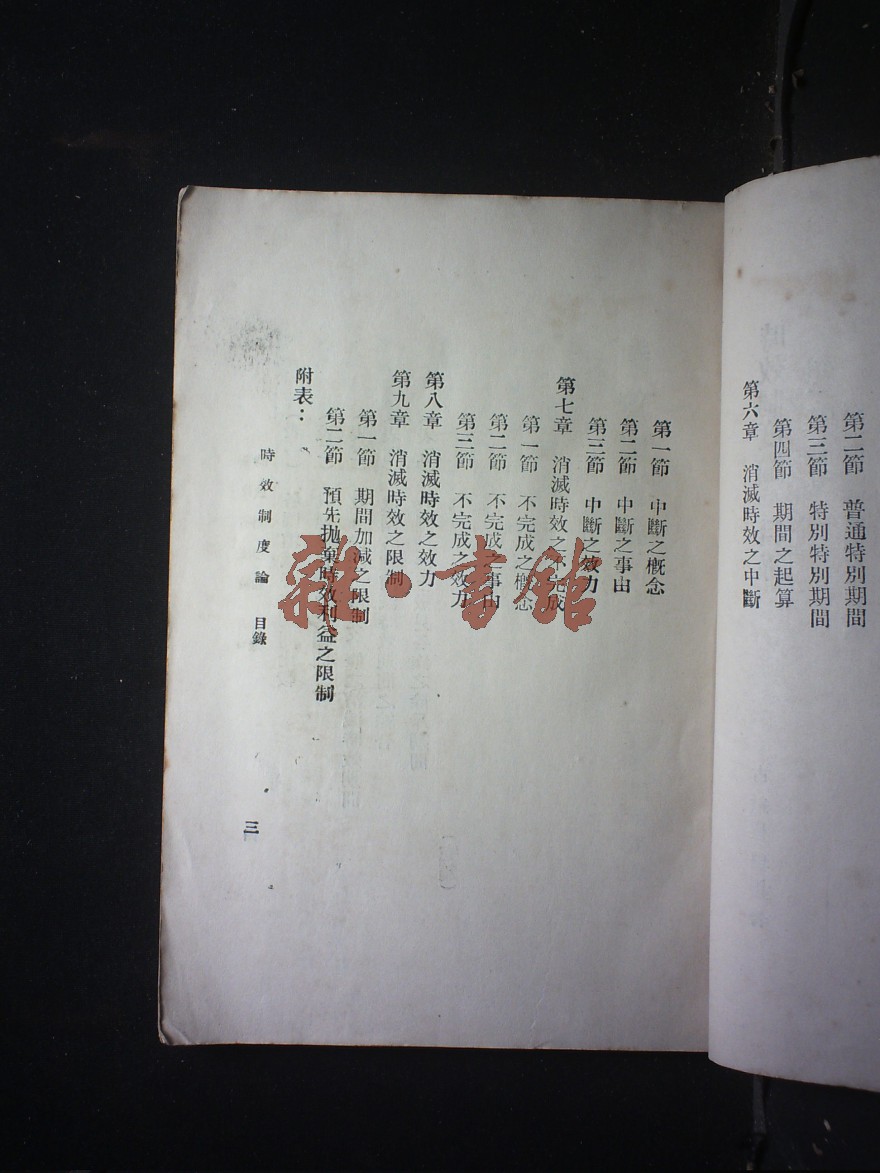 第二節　普通特別期間
第三節　特別特別期間
第四節　期間之起算
第六章　消滅時效之中斷
第一節　中斷之槪念
第二節　中斷之事由
第三節　中斷之效力
第七章　消滅時效之不完成
第一節　不完成之槪念
第二節　不完成之事由
第三節　不完成之效力
第八章　消滅時效之效力
第九章　消滅時效之限制
第一節　期間加減之限制
第二節　預先拋棄時效利益之限制
附表：
時效制度論　目錄
三
雜·書館